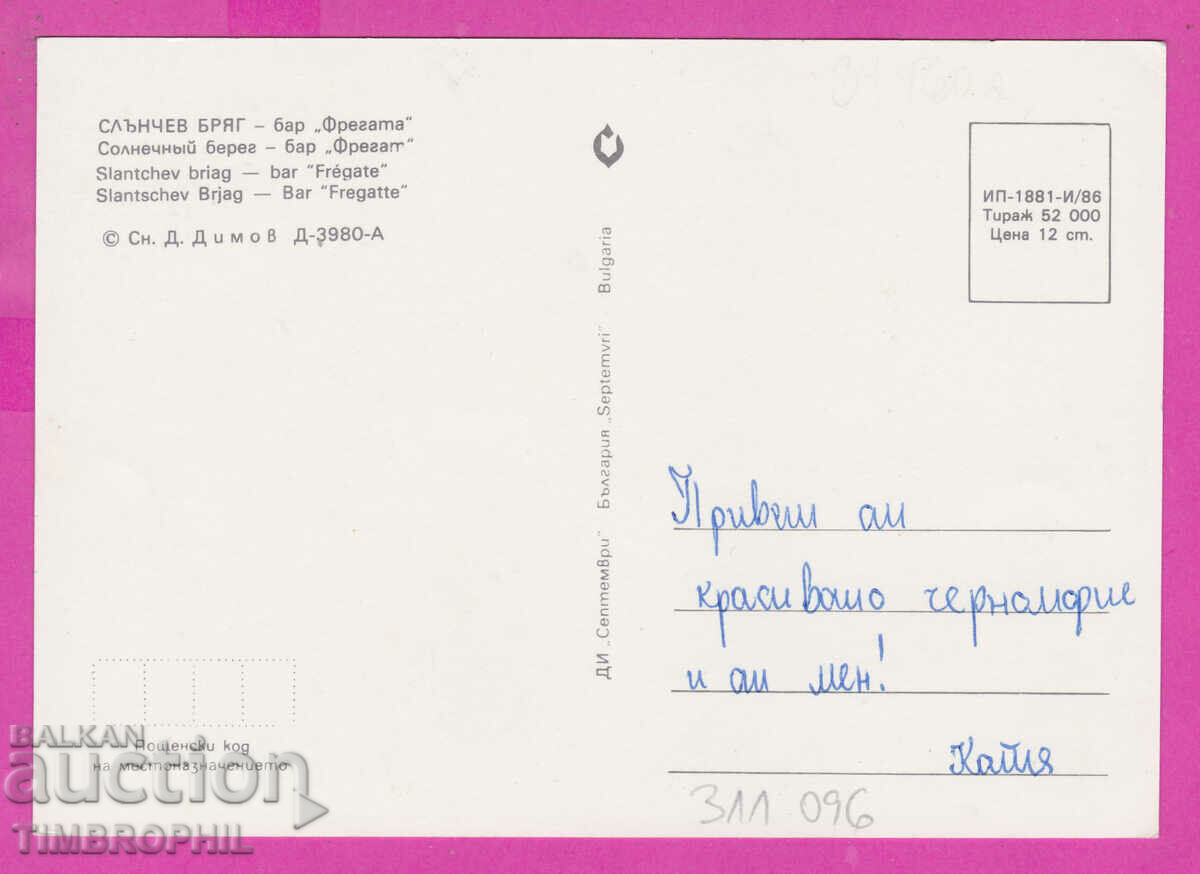 СЛЪНЧЕВ БРЯГ – бар „Фрегата“
Солнечный берег – бар „Фрегат“
Slantchev briag — bar "Frégate"
Slantschev Brjag — Bar "Fregatte"
© Сн. Д. Димов Д-3980-А
ИП-1881-И/86
Тираж 52 000
Цена 12 ст.
ДИ „Септември“ България „Septemvri“ Bulgaria
Привет от
красивото черноморие
и от мен!
Катя
Пощенски код
на местоназначението
311 096
BALKAN
auction
TIMBROPHIL